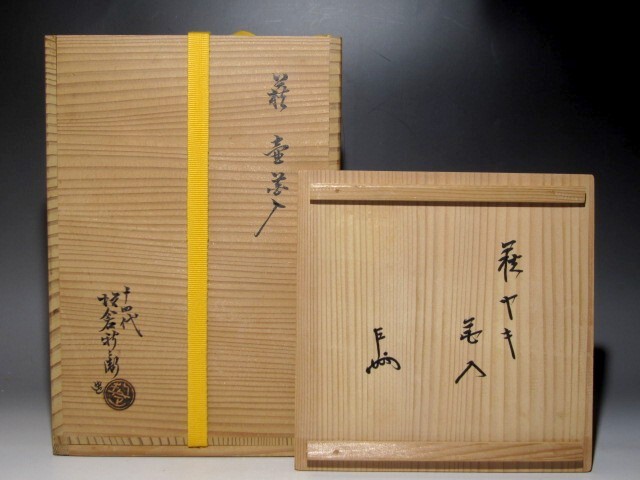 萩 壷花入
十四代
坂倉新兵衛
造
萩ヤキ
花入